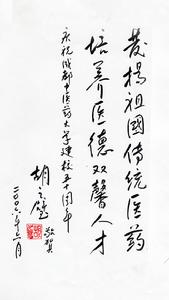 发扬祖國传统医药
培养医德双馨人才
庆祝成都中医药大学建校五十周年
胡之璧
敬贺
二〇〇六年三月